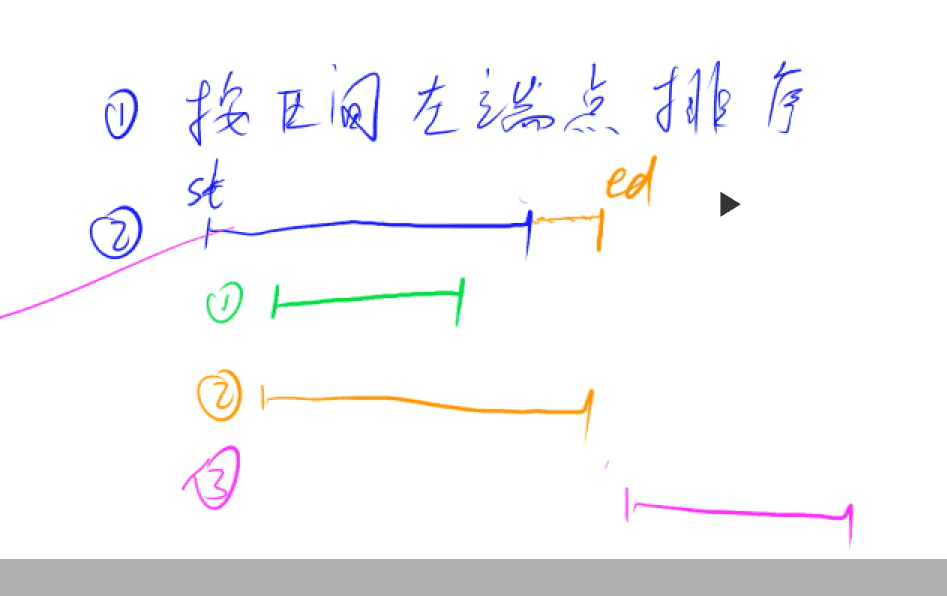 ① 按区间左端点排序
st ed
②
①
②
③